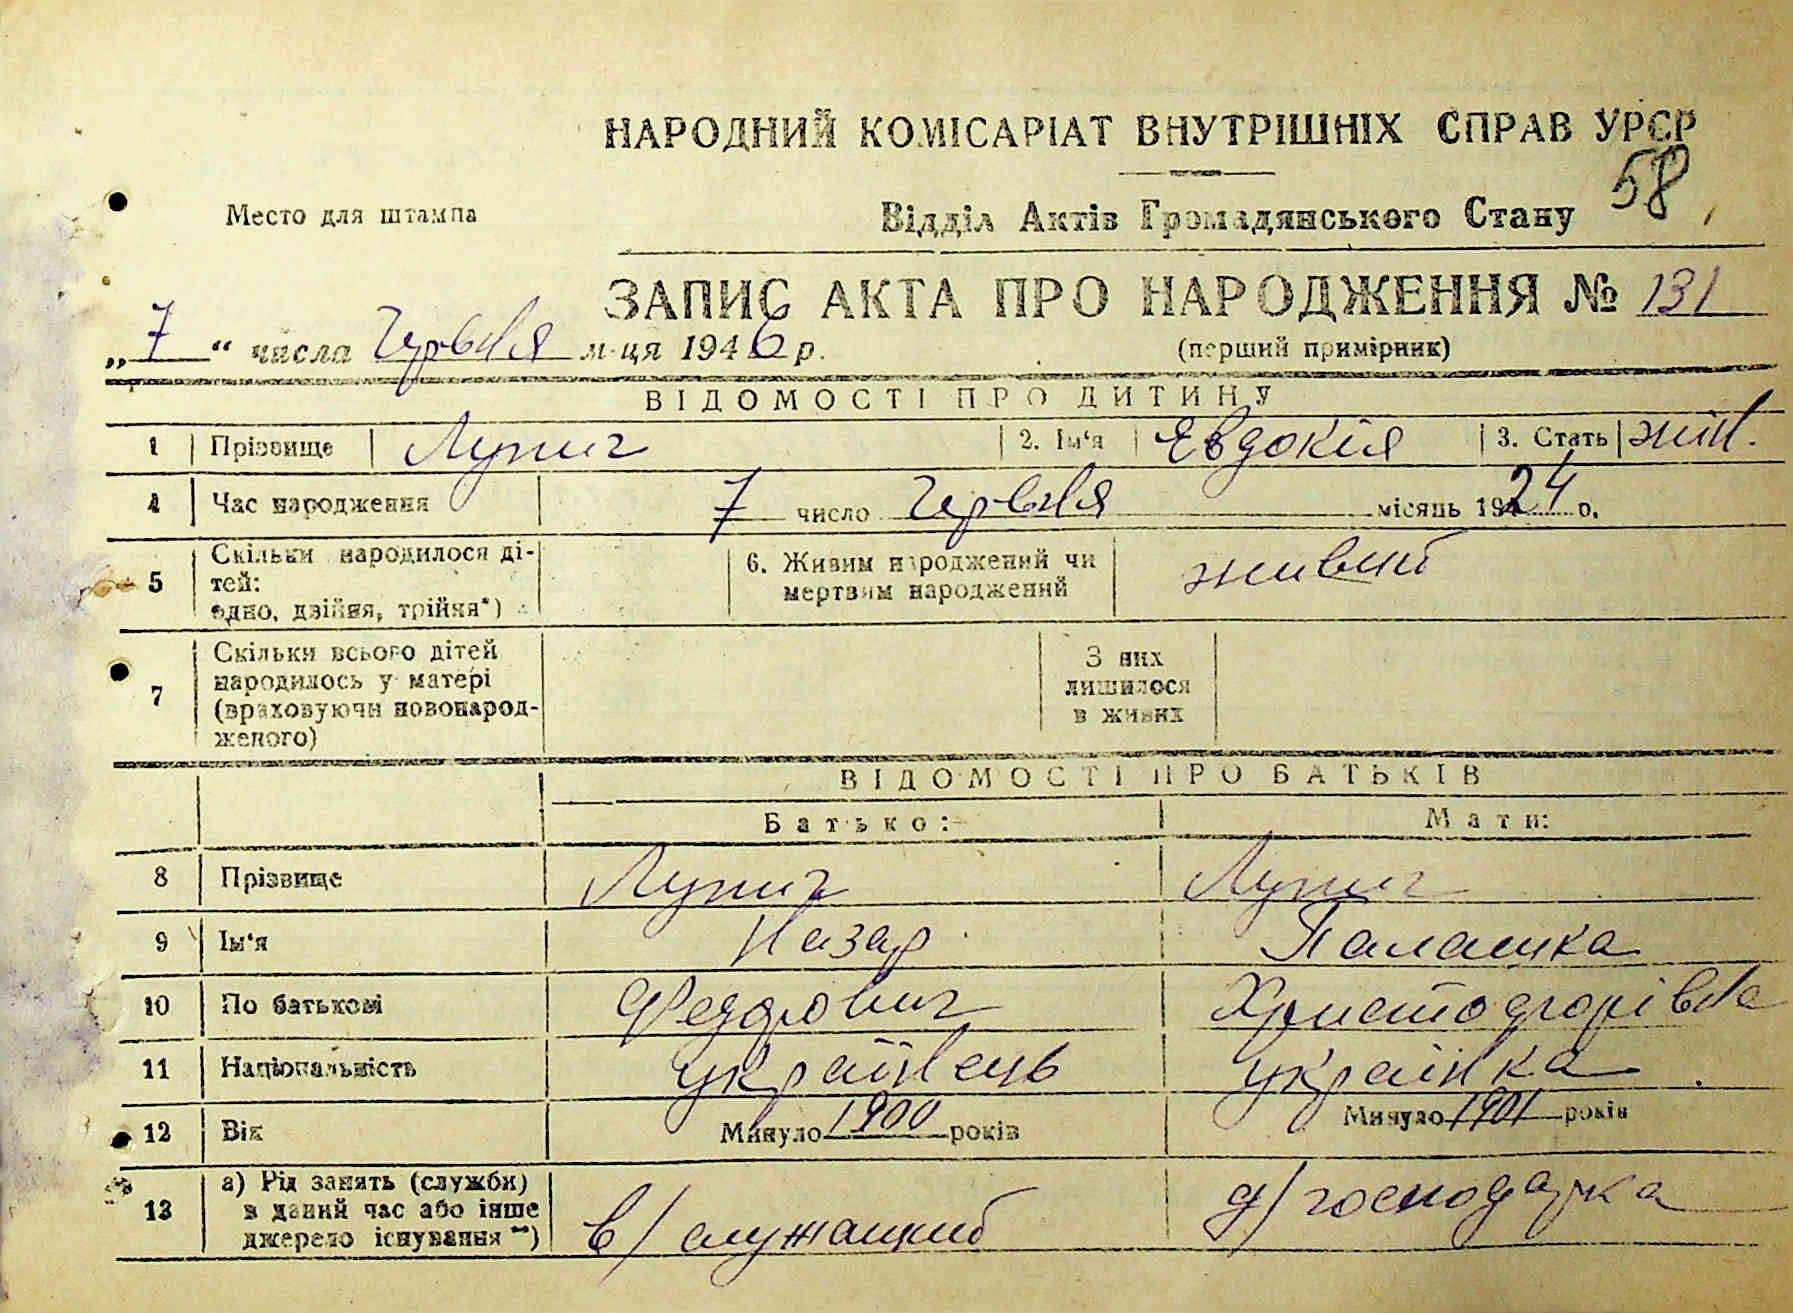 НАРОДНИЙ КОМІСАРІАТ ВНУТРІШНІХ СПРАВ УРСР
58
Место для штампа
Відділ Актів Громадянського Стану
ЗАПИС АКТА ПРО НАРОДЖЕННЯ № 131
„7“ числа Червня м-ця 1946 р.
(перший примірник)
ВІДОМОСТІ ПРО ДИТИНУ
1 Прізвище Лупич 2. Ім‘я Євдокія 3. Стать жін.
4 Час народження 7 число Червня місяць 1924 р.
5 Скільки народилося ді-
тей:
одно, двійня, трійня*)
6. Живим народжений чи
мертвим народжений
живий
7 Скільки всього дітей
народилось у матері
(враховуючи новонарод-
женого)
З них
лишилося
в живих
ВІДОМОСТІ ПРО БАТЬКІВ
Батько: Мати:
8 Прізвище Лупич Лупич
9 Ім‘я Назар Палашка
10 По батькові Федорович Христофорівна
11 Національність українець українка
12 Вік Минуло 1900 років Минуло 1901 років
13 а) Рід занять (служби)
в даний час або інше
джерело існування **)
в/ служащий д/господарка